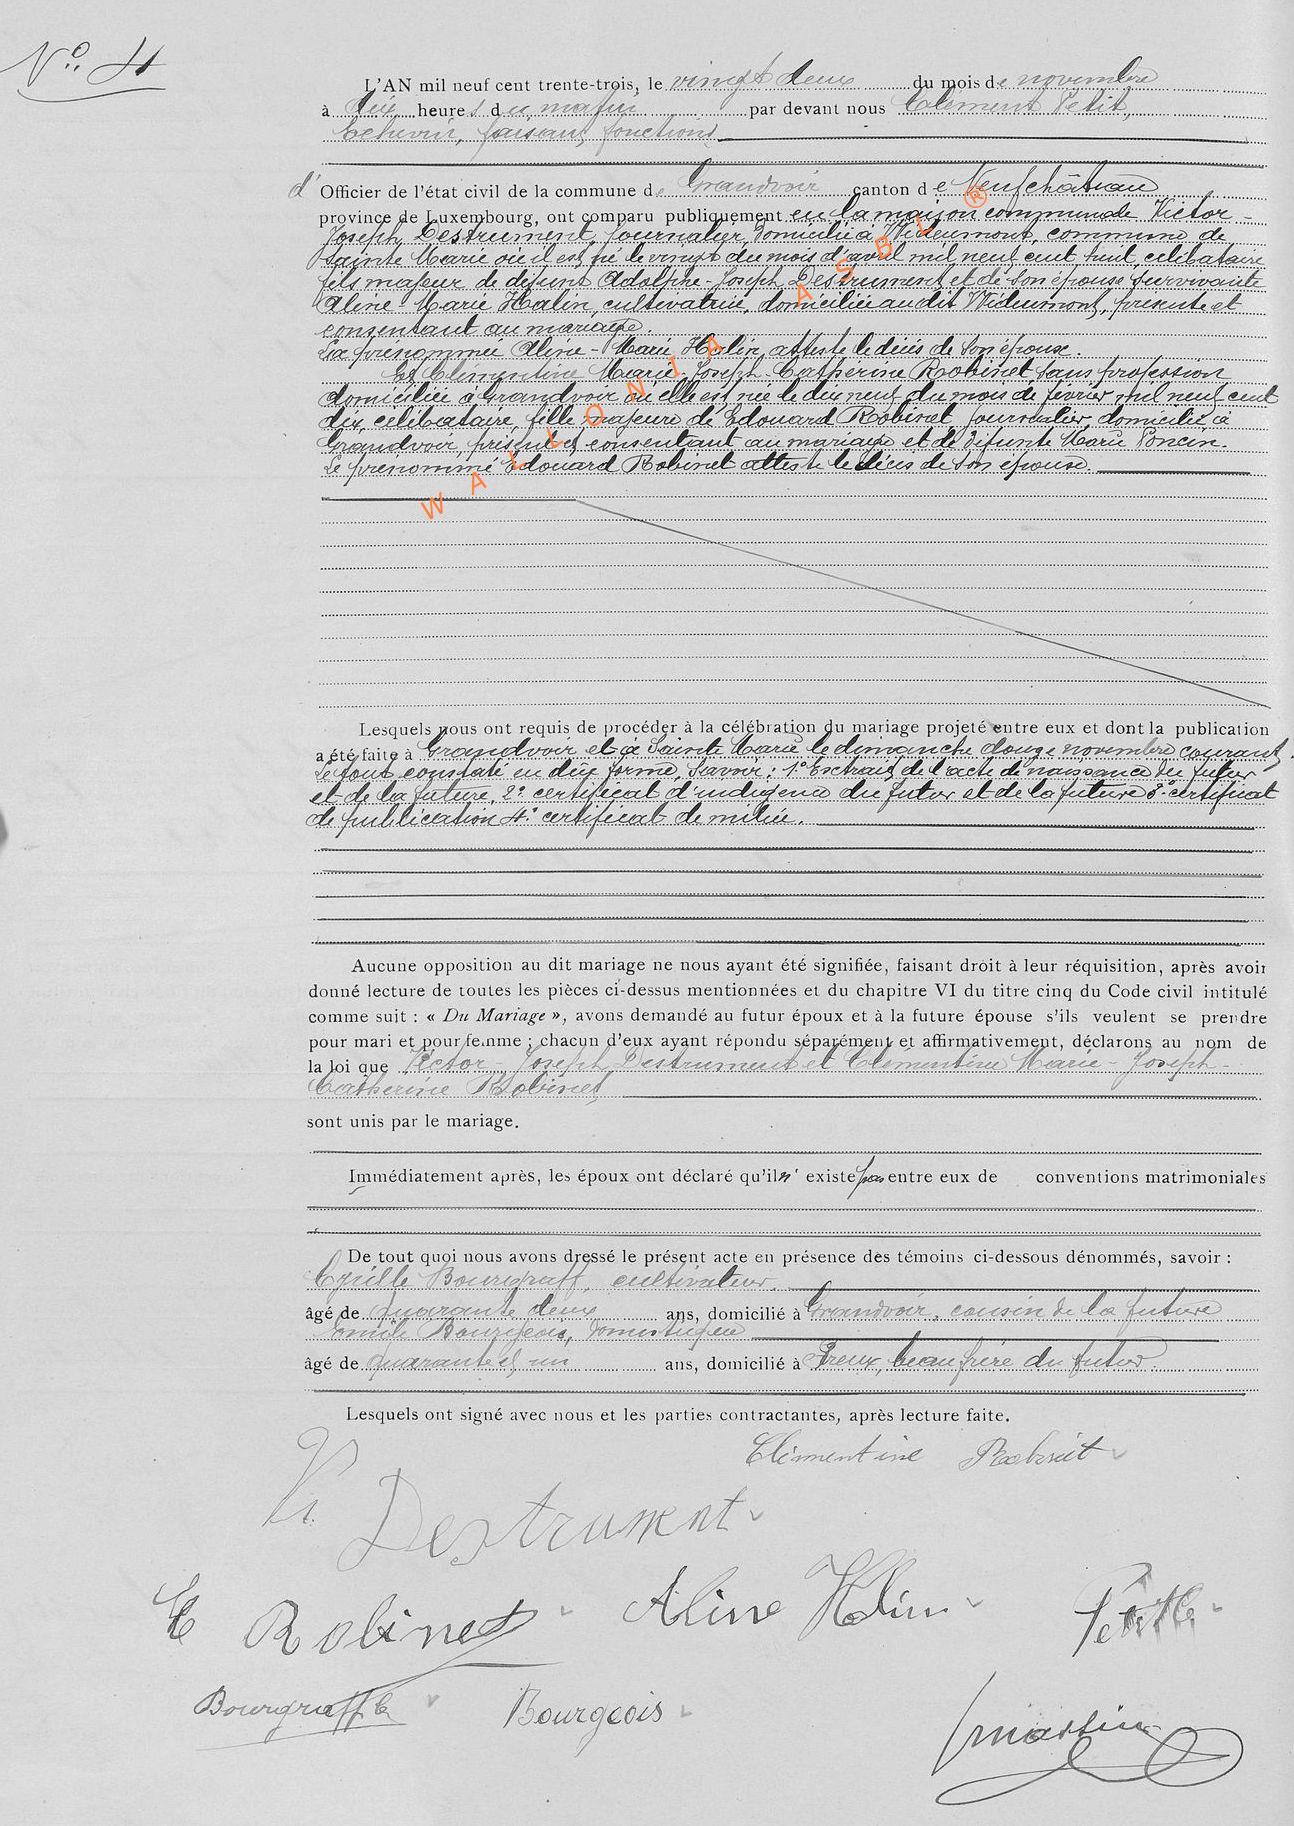 No. 4
L'AN mil neuf cent trente-trois, le vingt deux du mois de novembre
à dix heures du matin par devant nous Clément Petit,
Echevin, faisant fonctions
d' Officier de l'état civil de la commune de Grandvoir canton de Neufchâteau
province de Luxembourg, ont comparu publiquement en la maison communale Victor-
Joseph Destrument, journalier, domicilié à Wideumont, commune de
Sainte Marie où il est né le vingt du mois d'avril mil neuf cent huit, célibataire
fils majeur de défunt Adolphe-Joseph Destrument et de son épouse survivante
Aline Marie Halin, cultivatrice, domiciliée au dit Wideumont, présente et
consentant au mariage.
La prénommée Aline-Marie Halin atteste le décès de son époux.
Et Clémentine Marie-Joseph-Catherine Robinet sans profession
domiciliée à Grandvoir où elle est née le dix neuf du mois de février mil neuf cent
dix, célibataire, fille majeure de Edouard Robinet journalier, domicilié à
Grandvoir, présent et consentant au mariage et de défunte Marie Poncin.
Le prénommé Edouard Robinet atteste le décès de son épouse.
WALLONIA ASBL ®
Lesquels nous ont requis de procéder à la célébration du mariage projeté entre eux et dont la publication
a été faite à Grandvoir et à Sainte Marie le dimanche douze novembre courant
Le tout constaté en due forme, savoir : 1° Extrait de l'acte de naissance du futur
et de la future, 2° certificat d'indigence du futur et de la future 3° certificat
de publication 4° certificat de milice.
Aucune opposition au dit mariage ne nous ayant été signifiée, faisant droit à leur réquisition, après avoir
donné lecture de toutes les pièces ci-dessus mentionnées et du chapitre VI du titre cinq du Code civil intitulé
comme suit : « Du Mariage », avons demandé au futur époux et à la future épouse s'ils veulent se prendre
pour mari et pour femme ; chacun d'eux ayant répondu séparément et affirmativement, déclarons au nom de
la loi que Victor-Joseph Destrument et Clémentine Marie-Joseph-
Catherine Robinet
sont unis par le mariage.
Immédiatement après, les époux ont déclaré qu'il n'existe pas entre eux de conventions matrimoniales
De tout quoi nous avons dressé le présent acte en présence des témoins ci-dessous dénommés, savoir :
Cyrille Bourgraff, cultivateur,
âgé de quarante deux ans, domicilié à Grandvoir, cousin de la future
Emile Bourgeois, domestique
âgé de quarante et un ans, domicilié à beau frère du futur
Lesquels ont signé avec nous et les parties contractantes, après lecture faite.
Clémentine Robinet
Vr. Destrument
E Robinet Aline Halin Petit C.
Bourgraff C Bourgeois
Martin